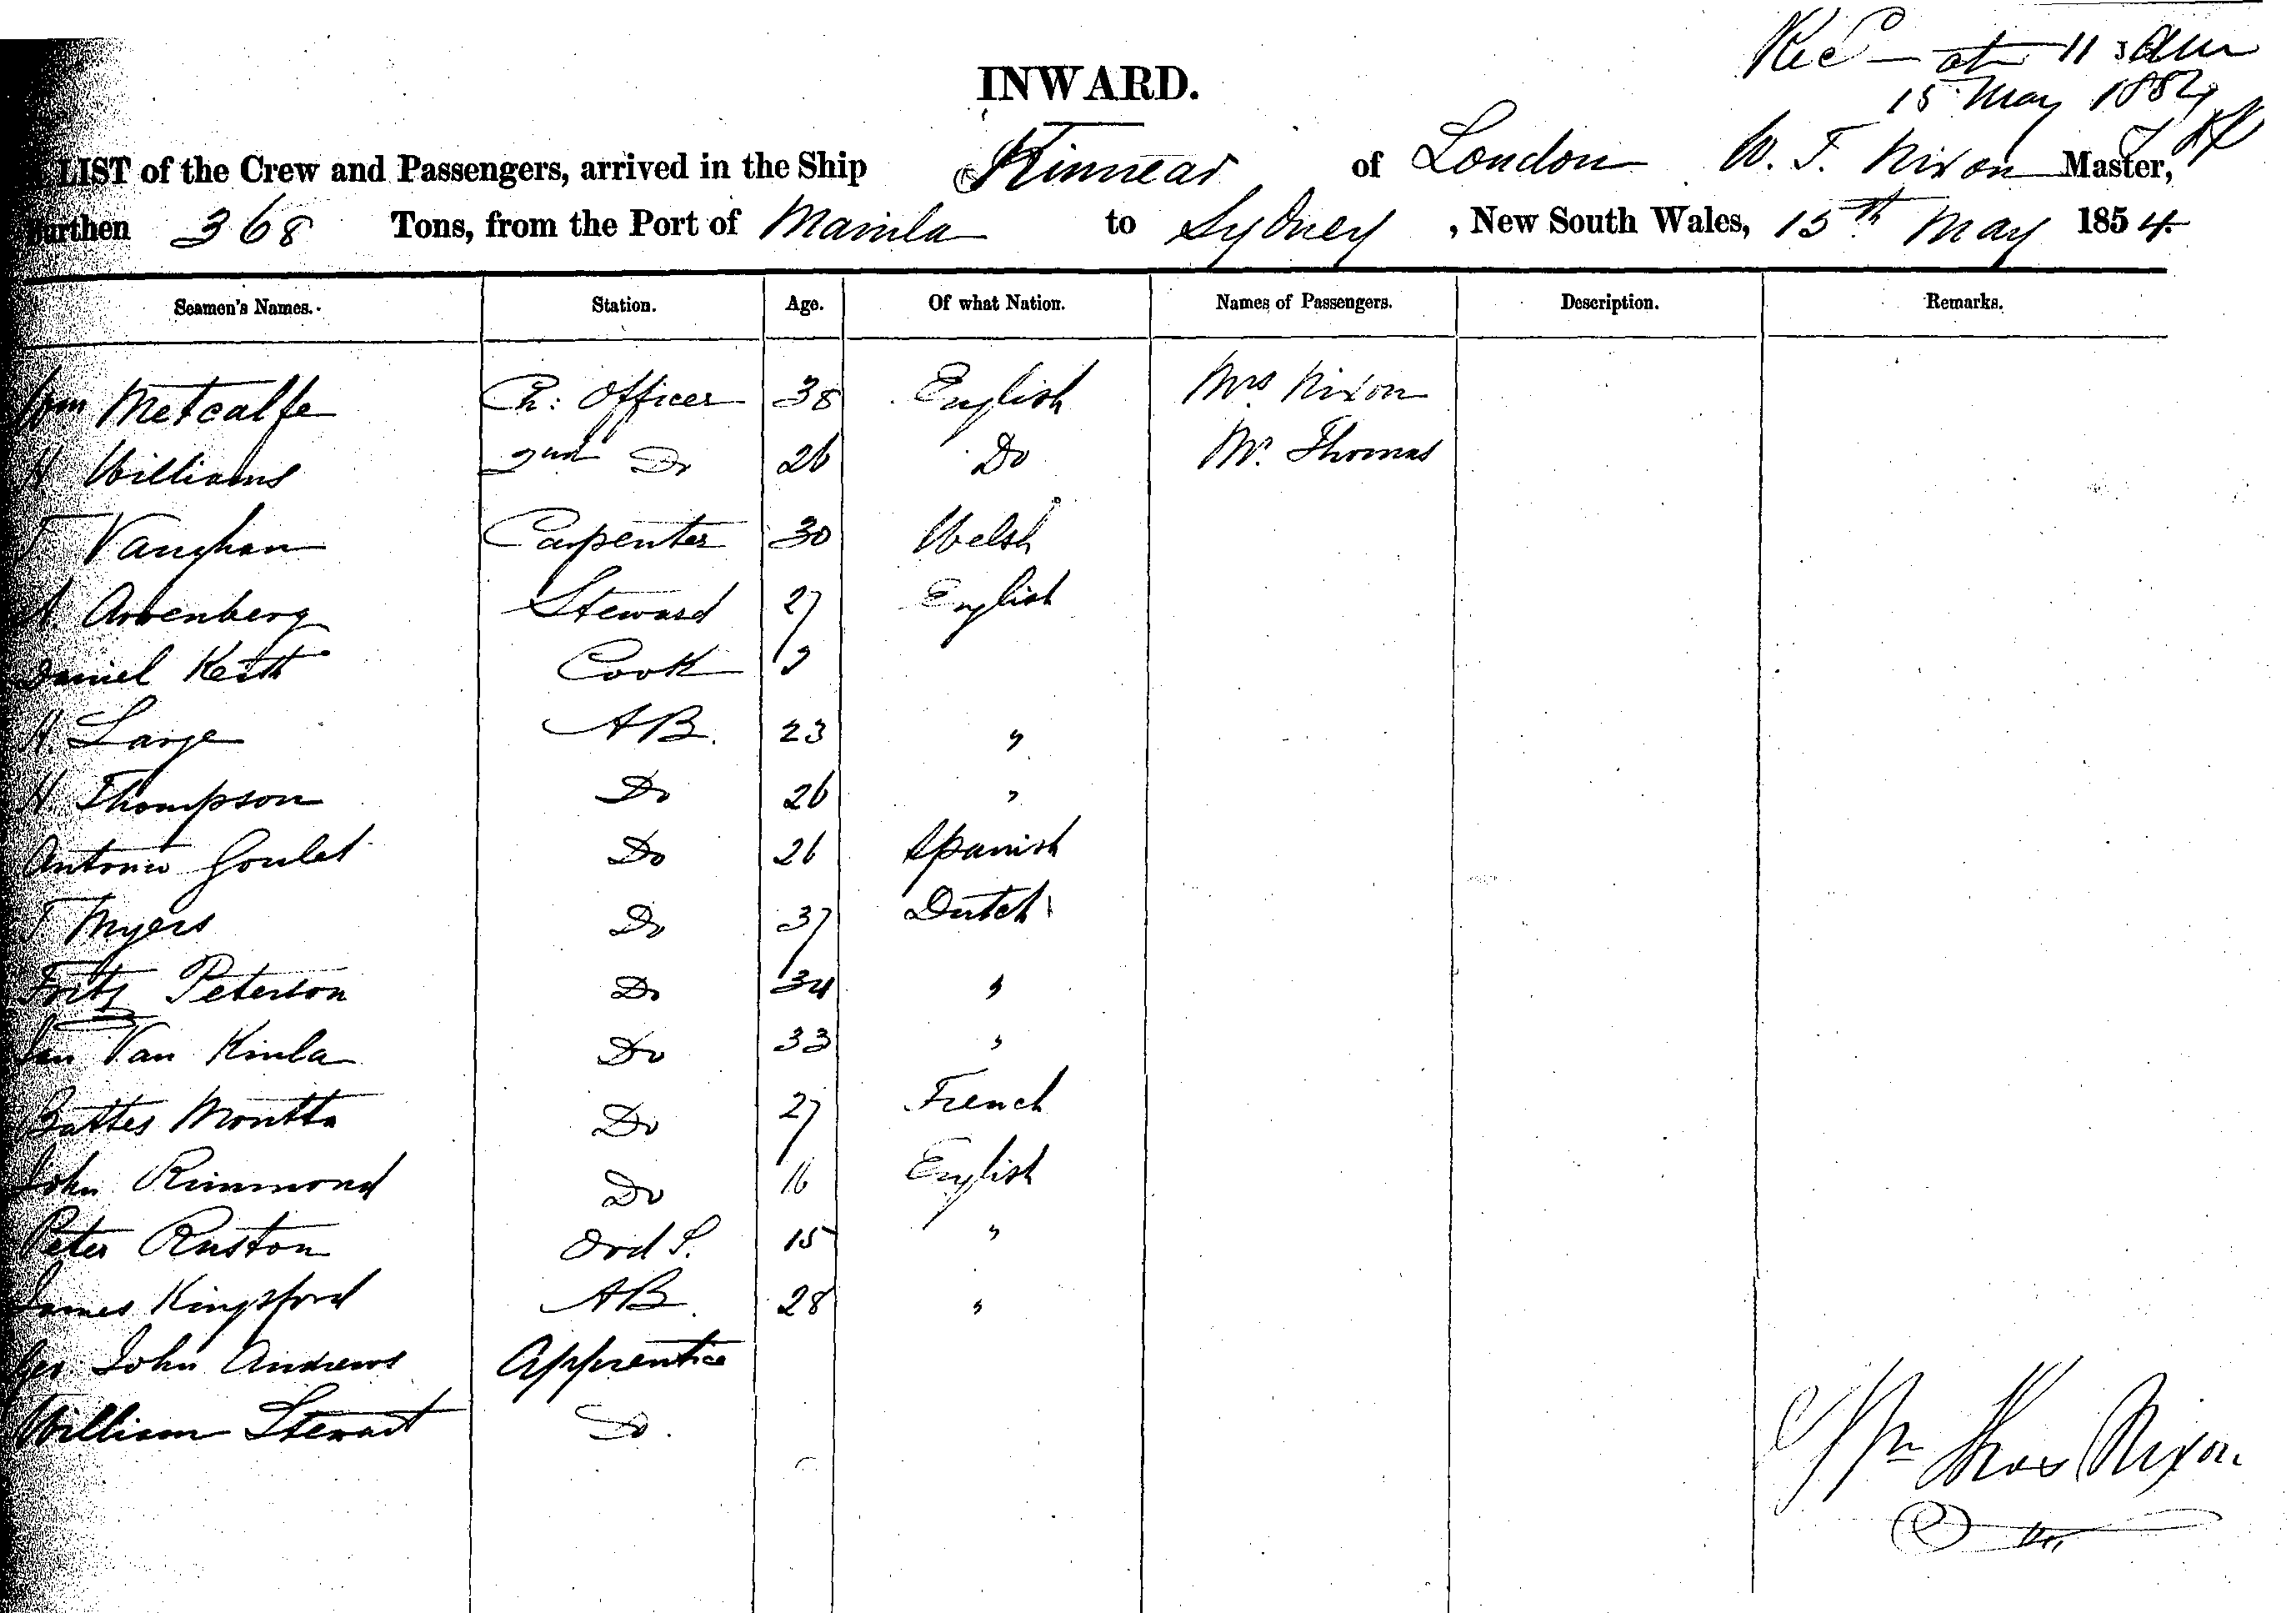 Recd at 11 am
15 May 1854
INWARD.
LIST of the Crew and Passengers, arrived in the Ship Kinnear of London W. T. Nixon Master,
Burthen 368 Tons, from the Port of Manila to Sydney, New South Wales, 15th May 1854
Seamen's Names. Station. Age. Of what Nation. Names of Passengers. Description. Remarks.
Wm Metcalfe Ch: Officer 38 English Mrs Nixon
H Williams 2nd Do 26 Do Mr. Thomas
T Vaughan Carpenter 30 Welsh
A Arenberg Steward 27 English
Daniel Keith Cook
H. Large AB. 23 "
H. Thompson Do 26 "
Antonio Goulet Do 26 Spanish
T. Myers Do 37 Dutch
Fritz Peterson Do 34 "
Jan Van Kinla Do 33 "
Battes Montta Do 27 French
John Rimmond Do 16 English
Peter Ruston Ord S. 15 "
James Kingsford AB. 28 "
Geo John Andrews Apprentice
William Stewart Do.
Wm Thos Nixon